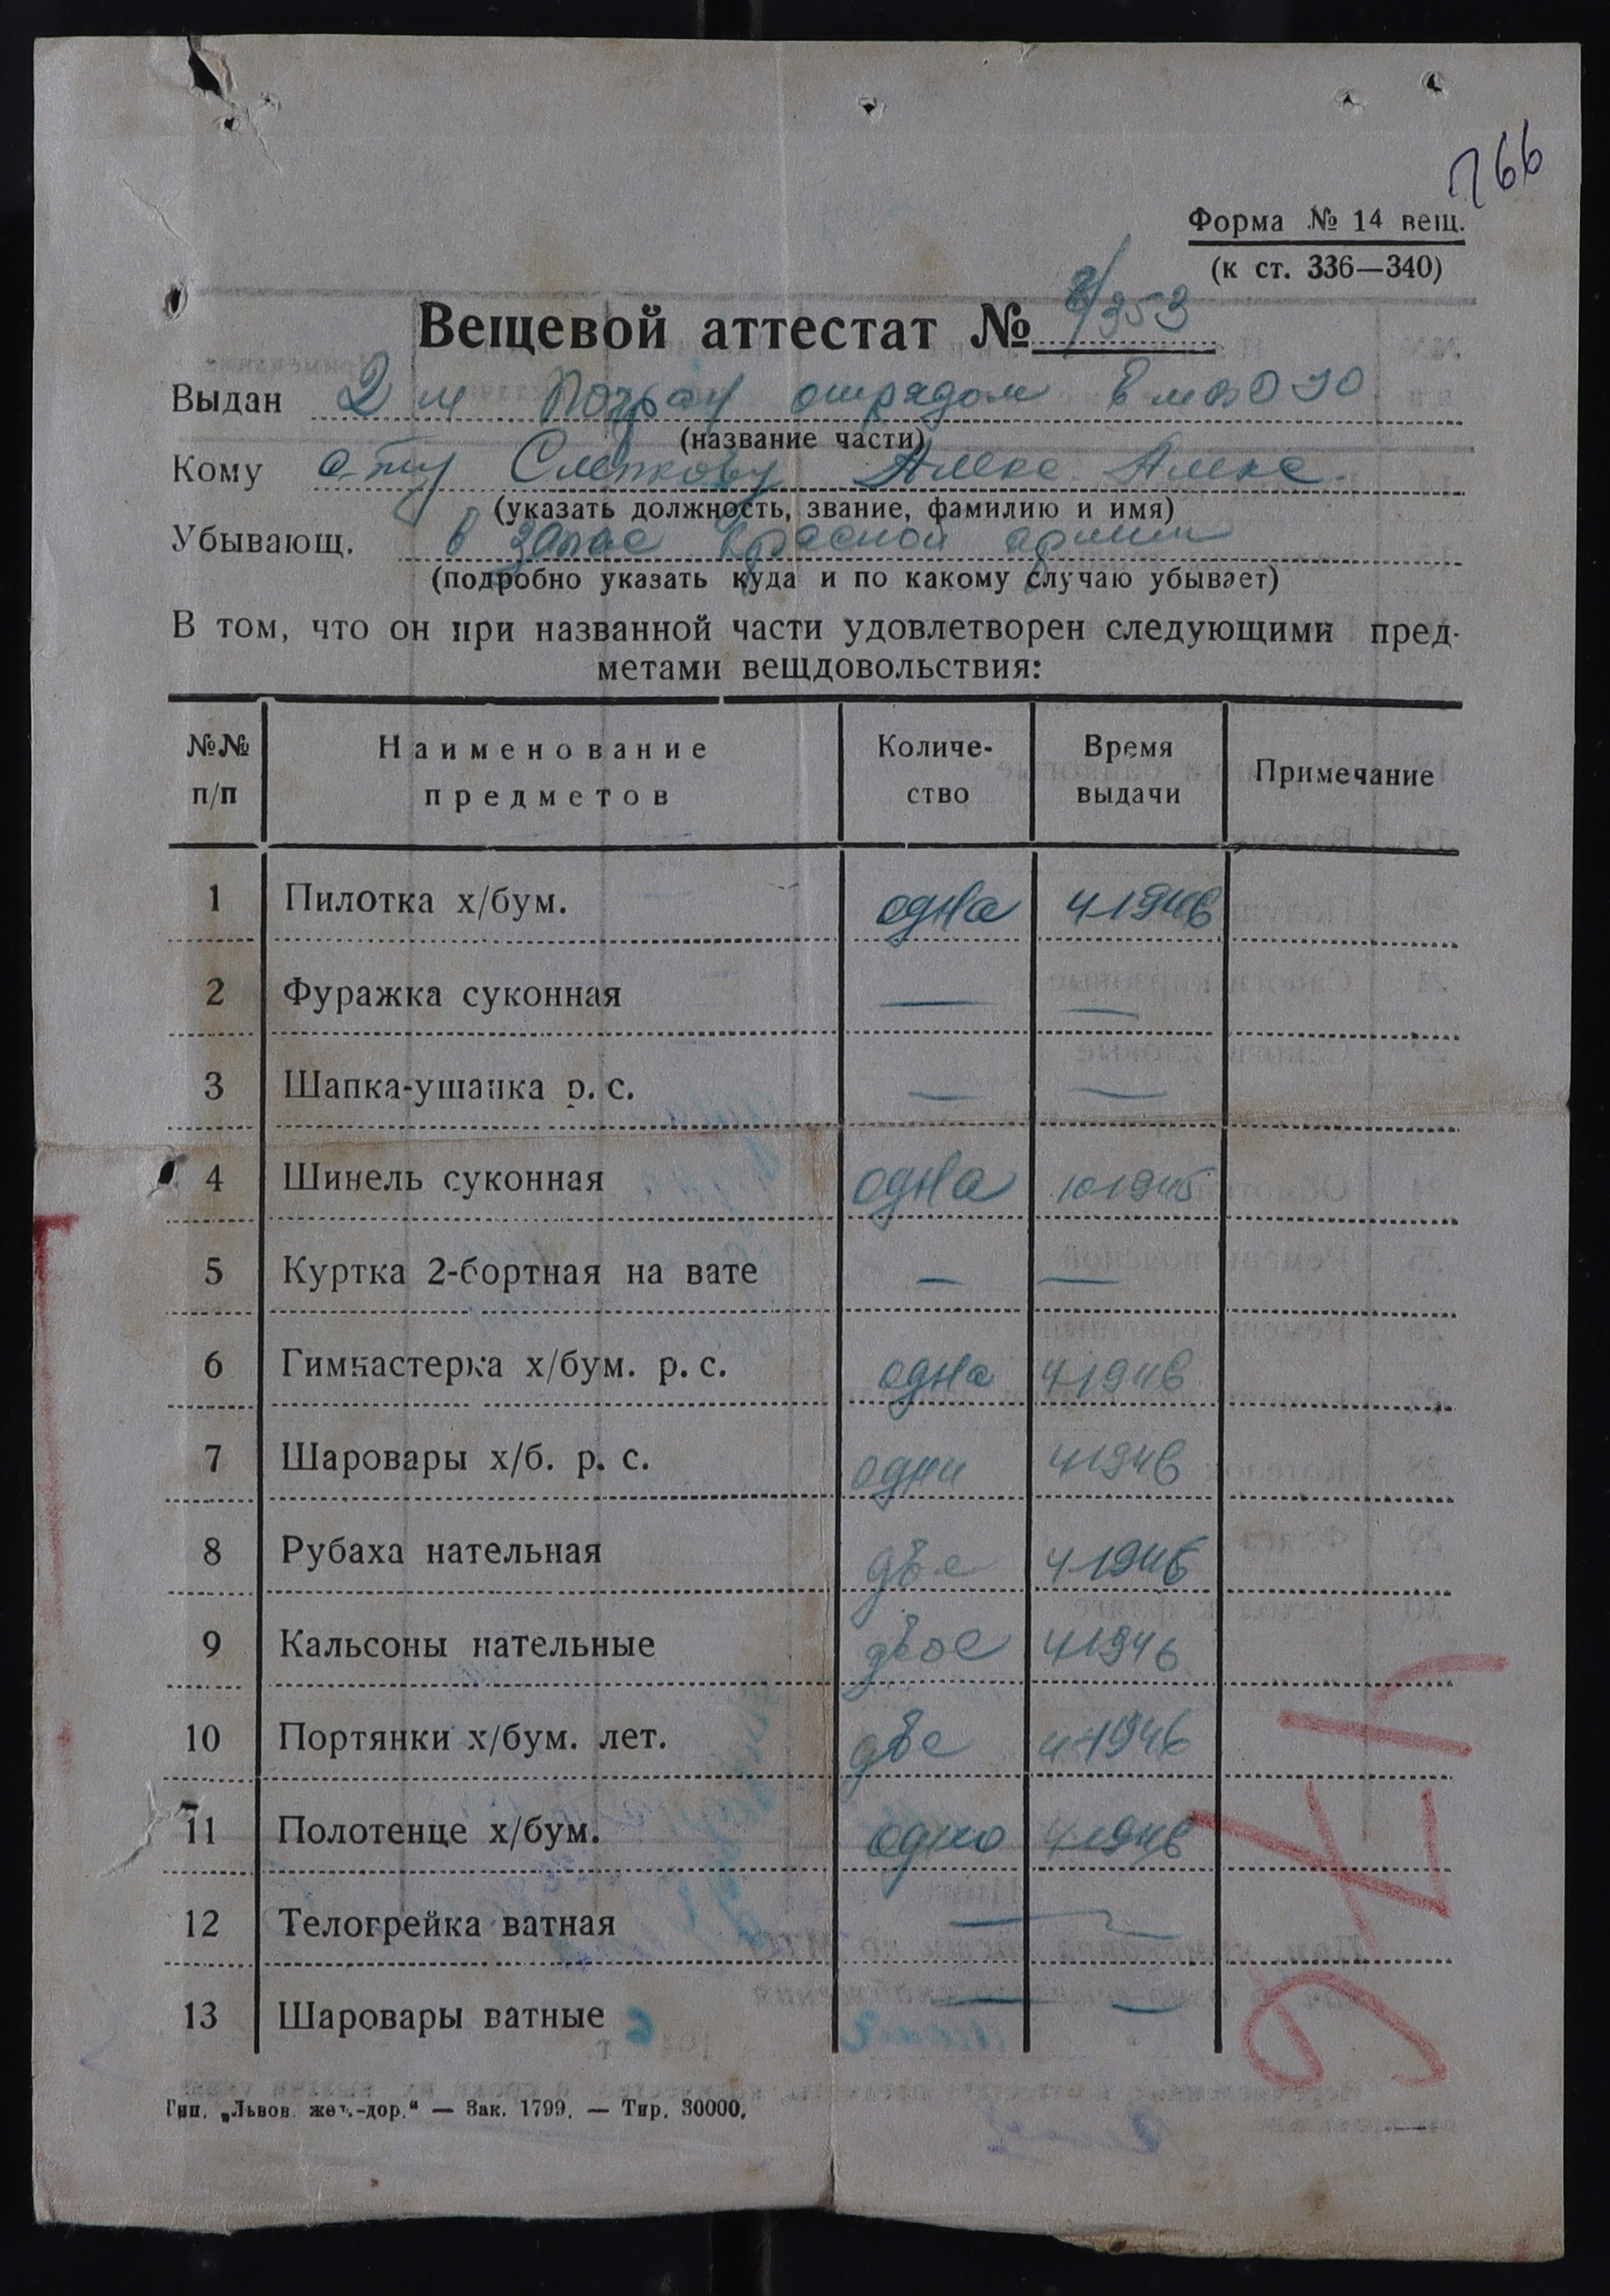 766
Форма № 14 вещ.
(к ст. 336—340)
Вещевой аттестат № 2/353
Выдан 2 м Погран отрядом
(название части)
Кому с-ту Слепкову Алекс Алекс.
(указать должность, звание, фамилию и имя)
Убывающ. в запас Красной армии
(подробно указать куда и по какому случаю убывает)
В том, что он при названной части удовлетворен следующими пред-
метами вещдовольствия:
№№ п/п Наименование предметов Количе- ство Время выдачи Примечание
1 Пилотка х/бум. одна 4 1946
2 Фуражка суконная — —
3 Шапка-ушанка р. с. — —
4 Шинель суконная одна 10 1945
5 Куртка 2-бортная на вате — —
6 Гимнастерка х/бум. р. с. одна 4 1946
7 Шаровары х/б. р. с. одни 4 1946
8 Рубаха нательная две 4 1946
9 Кальсоны нательные двое 4 1946
10 Портянки х/бум. лет. две 4 1946
11 Полотенце х/бум. одно 4 1946
12 Телогрейка ватная — —
13 Шаровары ватные — —
Тип. „Львов. жел.-дор.“ — Зак. 1799. — Тир. 30000.